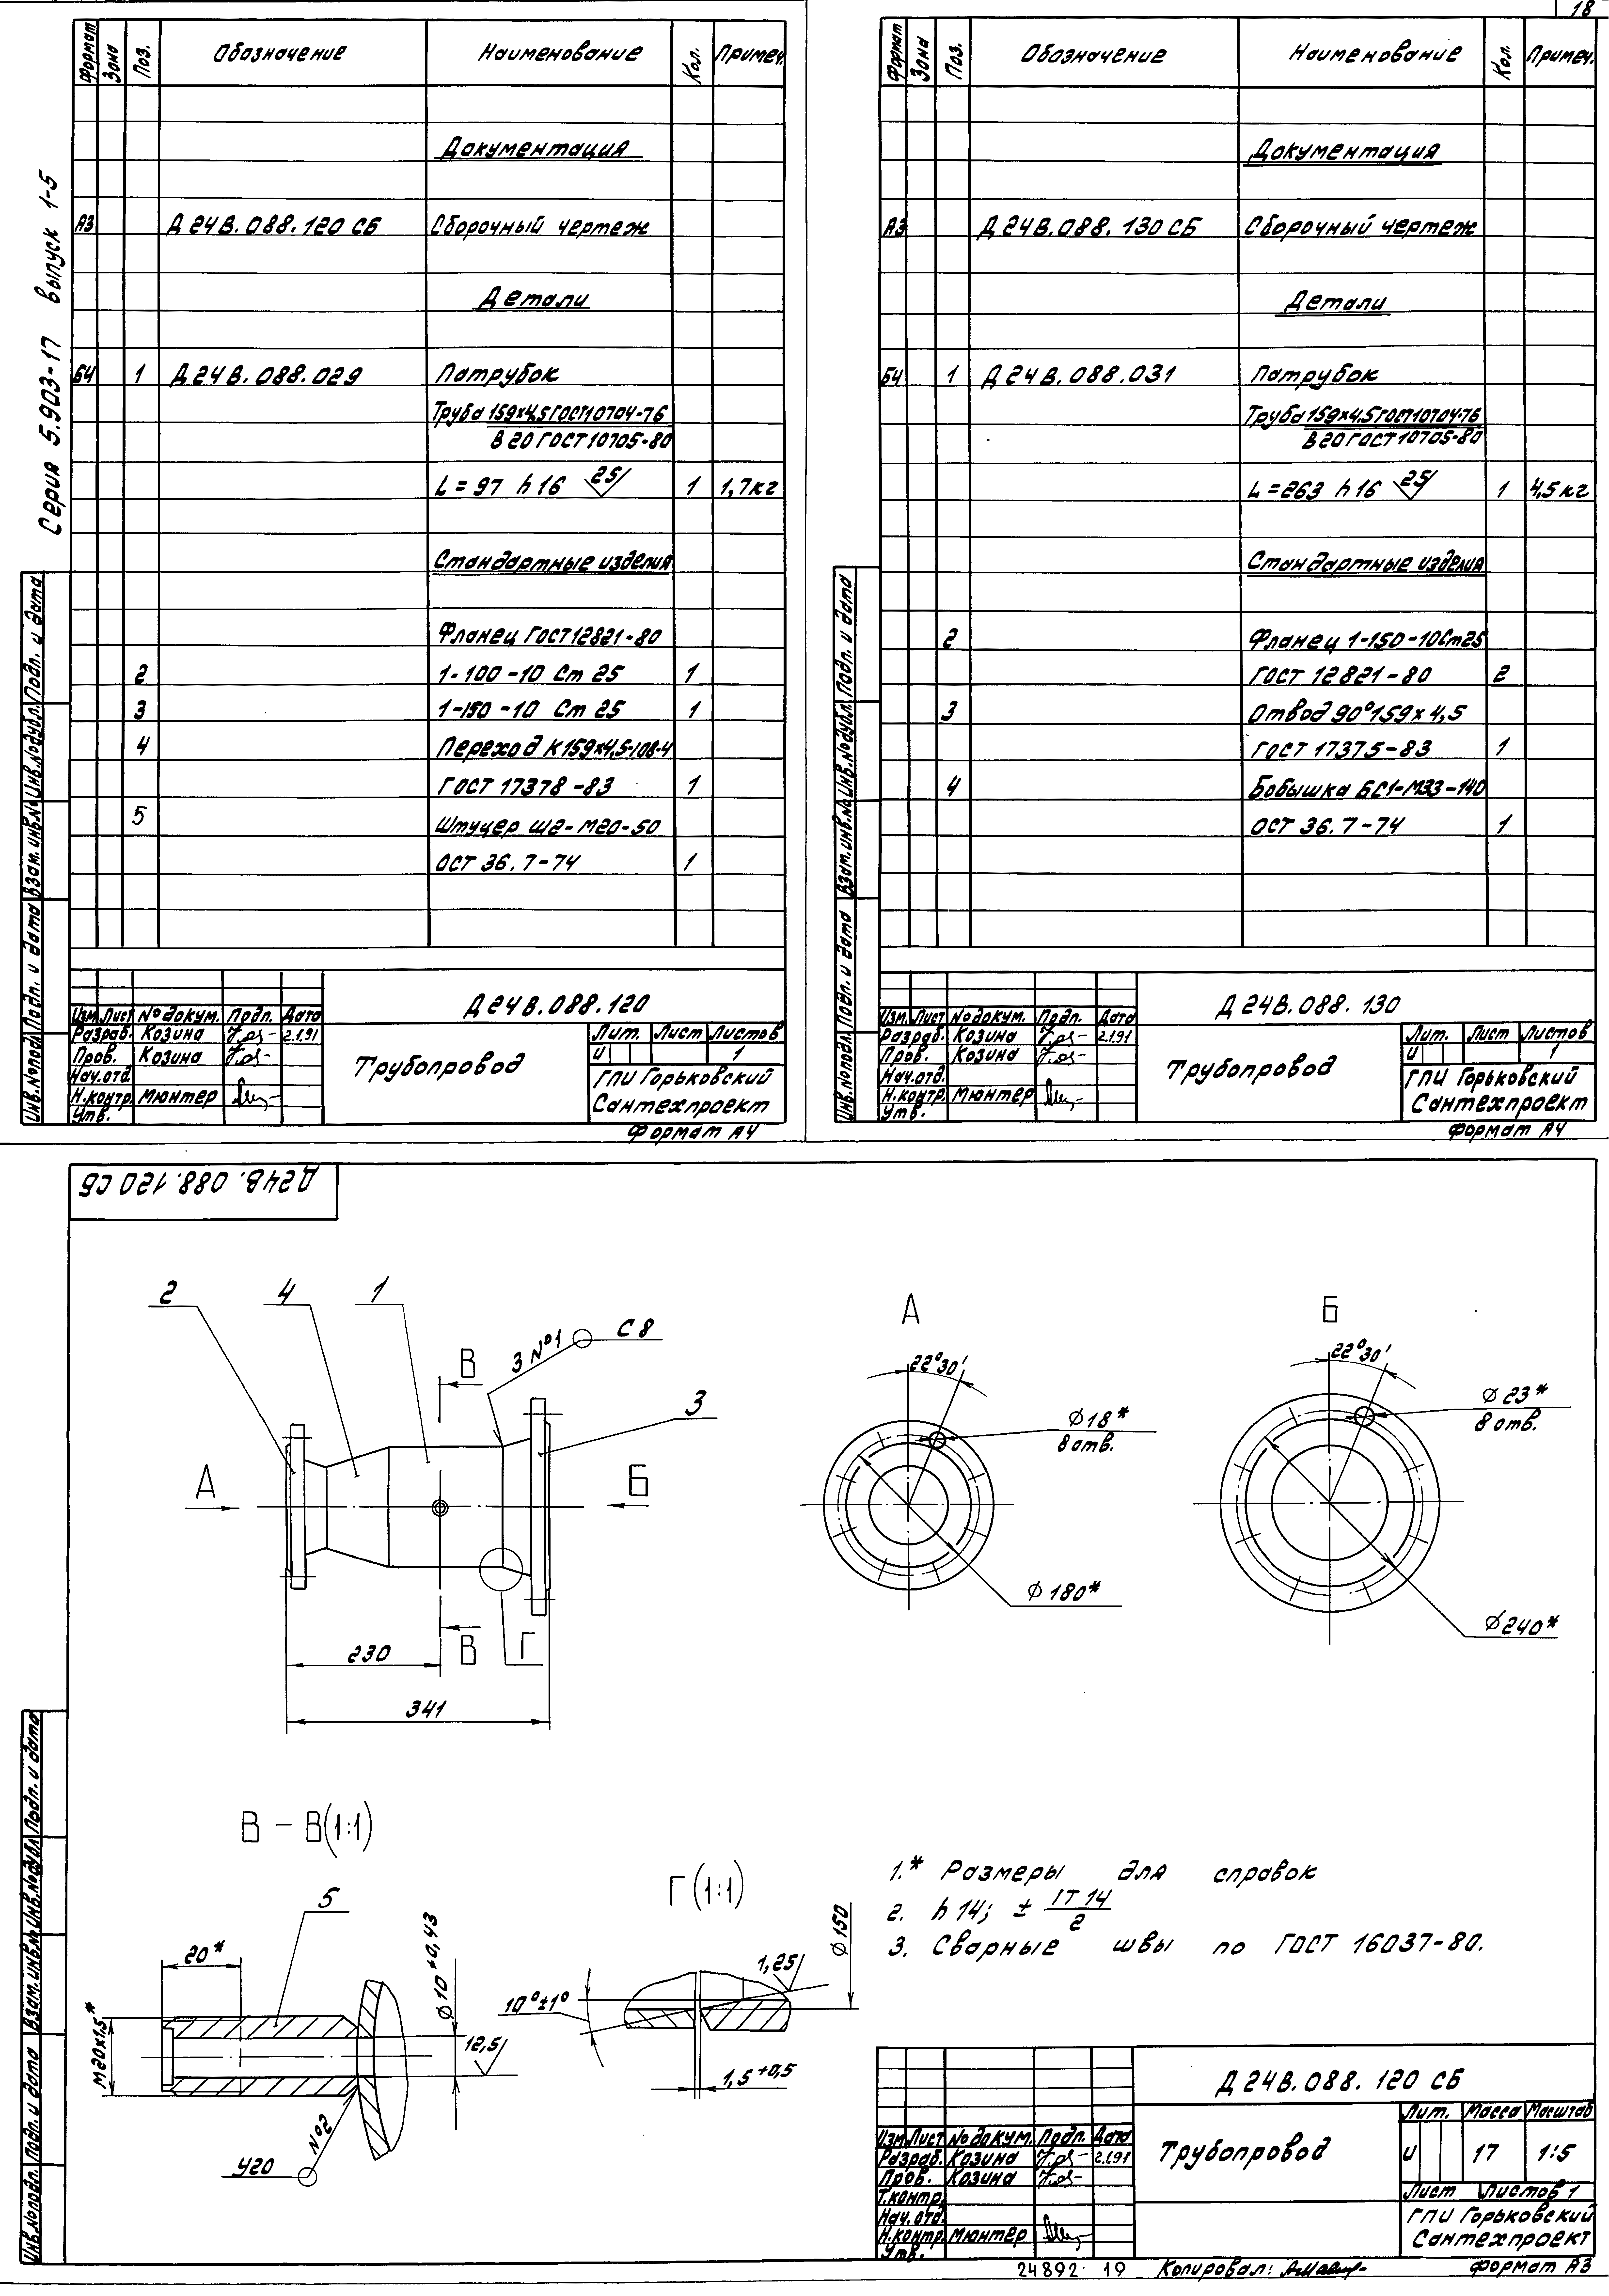 18
Серия 5.903-17 выпуск 1-5
Формат Зона Поз. Обозначение Наименование Кол. Примеч.
Документация
А3 Д24В.088.120 СБ Сборочный чертеж
Детали
БЧ 1 Д24В.088.029 Патрубок
Труба 159х4,5 ГОСТ 10704-76
В 20 ГОСТ 10705-80
L = 97 h16 25 1 1,7кг
Стандартные изделия
Фланец ГОСТ 12821-80
2 1-100-10 Ст 25 1
3 1-150-10 Ст 25 1
4 Переход К159х4,5-108-4
ГОСТ 17378-83 1
5 Штуцер Ш2-М20-50
ОСТ 36.7-74 1
Инв.№подл. Подп. и дата Взам.инв.№ Инв.№дубл. Подп. и дата
Д24В.088.120
Изм. Лист № докум. Подп. Дата
Разраб. Козина 2.1.91
Пров. Козина
Нач.отд.
Н.контр. Мюнтер
Утв.
Трубопровод
Лит. Лист Листов
И 1
ГПИ Горьковский
Сантехпроект
Формат А4
Формат Зона Поз. Обозначение Наименование Кол. Примеч.
Документация
А3 Д24В.088.130 СБ Сборочный чертеж
Детали
БЧ 1 Д24В.088.031 Патрубок
Труба 159х4,5 ГОСТ 10704-76
В 20 ГОСТ 10705-80
L = 263 h16 25 1 4,5кг
Стандартные изделия
2 Фланец 1-150-10Ст25
ГОСТ 12821-80 2
3 Отвод 90°159х4,5
ГОСТ 17375-83 1
4 Бобышка БС1-М33-140
ОСТ 36.7-74 1
Инв.№подл. Подп. и дата Взам.инв.№ Инв.№дубл. Подп. и дата
Д24В.088.130
Изм. Лист № докум. Подп. Дата
Разраб. Козина 2.1.91
Пров. Козина
Нач.отд.
Н.контр. Мюнтер
Утв.
Трубопровод
Лит. Лист Листов
И 1
ГПИ Горьковский
Сантехпроект
Формат А4
Д24В.088.120 СБ
2 4 1
3 №1 С8
В
3
А
Б
В
Г
230
341
А
22°30'
Ø18*
8 отв.
Ø180*
Б
22°30'
Ø23*
8 отв.
Ø240*
В – В(1:1)
5
20*
М20х1,5*
Ø10+0,43
12,5
№2
У20
Г(1:1)
Ø150
1,25
10°±1°
1,5+0,5
1.* Размеры для справок
2. h14; ± IT14/2
3. Сварные швы по ГОСТ 16037-80.
Инв.№подл. Подп. и дата Взам.инв.№ Инв.№дубл. Подп. и дата
Д24В.088.120 СБ
Изм. Лист № докум. Подп. Дата
Разраб. Козина 2.1.91
Пров. Козина
Т.контр.
Нач.отд.
Н.контр. Мюнтер
Утв.
Трубопровод
Лит. Масса Масштаб
И 17 1:5
Лист Листов 1
ГПИ Горьковский
Сантехпроект
24892 19 Копировал: Формат А3